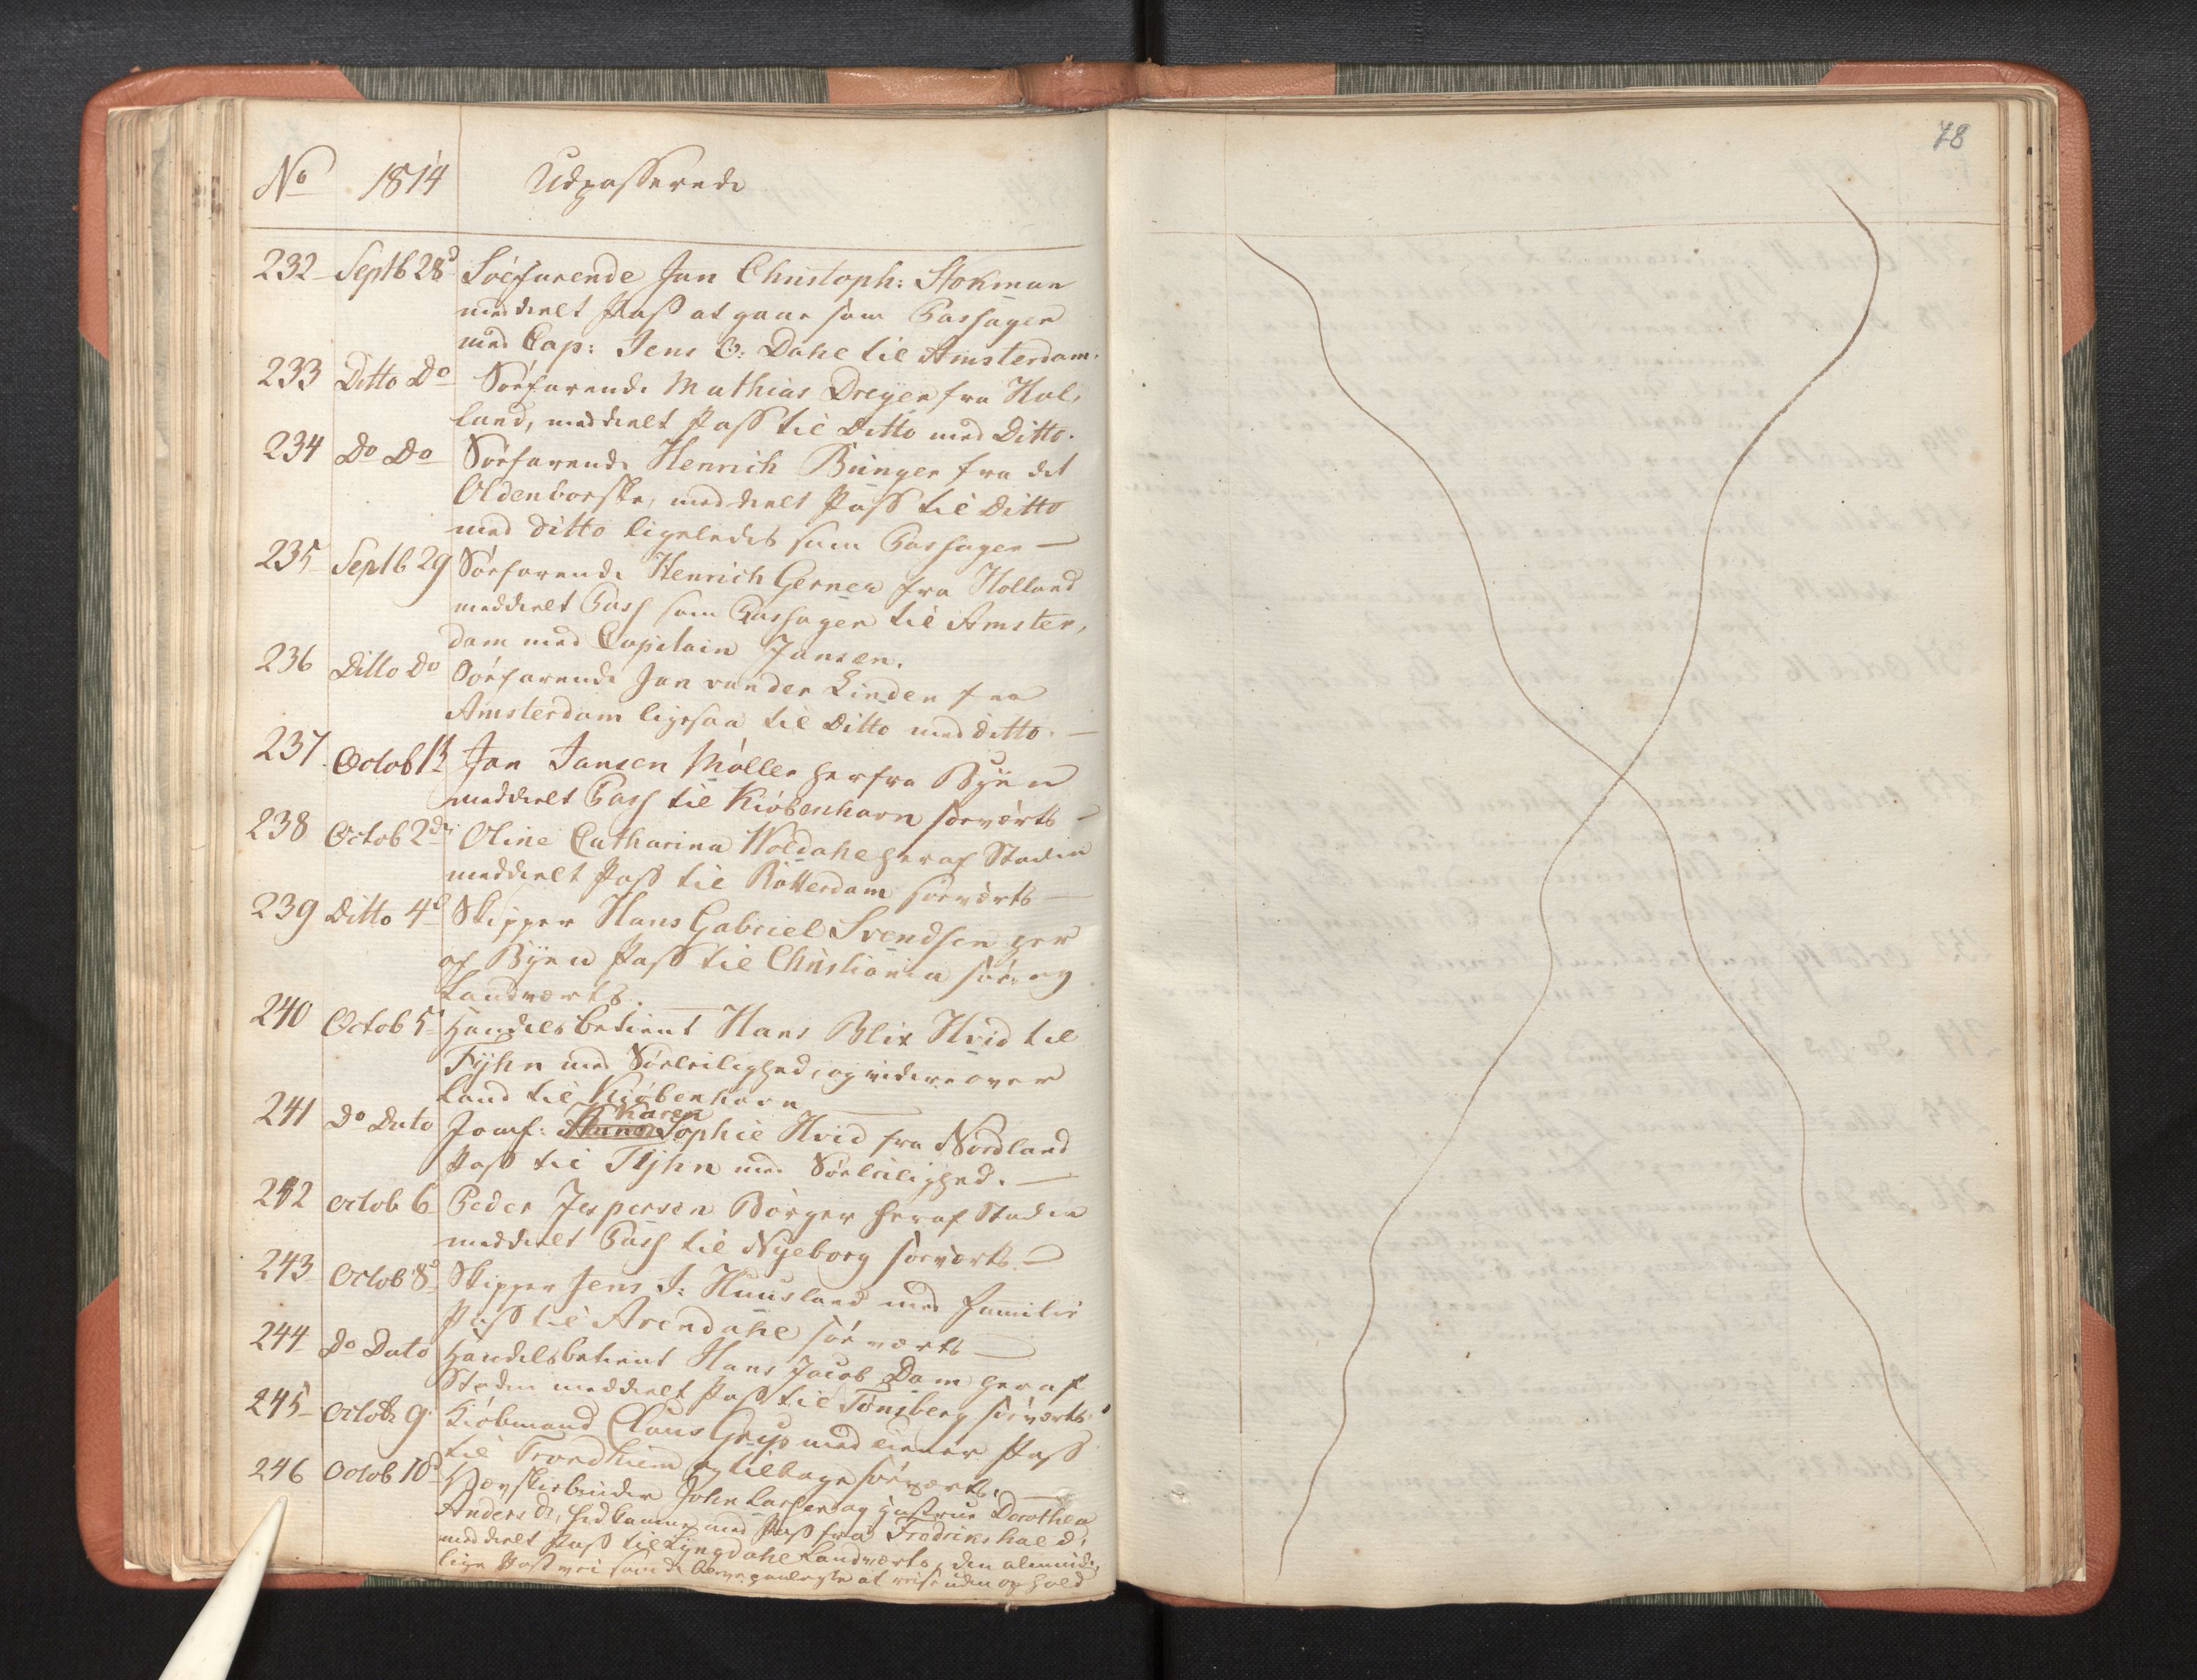 78
No 1814 Udpasserede
232 Septb 28d Söefarende Jan Christoph: Stokman
meddeelt Pass at gaae som Passager
med Cap: Jens O: Dahl til Amsterdam.
233 Ditto Do Söefarende Mathias Dreyer fra Hol-
land, meddeelt Pass til Ditto med Ditto.
234 Do Do Söefarende Henrich Bünger fra det
Oldenborske, meddeelt Pass til Ditto
med Ditto ligeledes som Passager —
235 Septb 29 Söefarende Henrich Gerner fra Holland
meddeelt Pass som Passager til Amster-
dam med Capitain Jansen.
236 Ditto Do Söefarende Jan van der Linden fra
Amsterdam ligesaa til Ditto med ditto. —
237 Octob 1 Jan Jansen Møller herfra Byen
meddeelt Pass til Kiöbenhavn søeværts —
238 Octob 2de Oline Catharina Woldahl her af Staden
meddeelt Pass til Rotterdam søeværts —
239 Ditto 4d Skipper Hans Gabriel Svendsen her
af Byen Pass til Christiania søe og
Landværts. —
240 Octob 5 Handelsbetient Hans Blix Hvid til
Fyhn med Söeleilighed, og videre over
Land til Kiöbenhavn —
Karen
241 Do Dato Jomf: Anna Sophie Hvid fra Nordland
Pass til Fyhn med Söeleilighed. —
242 Octob 6 Peder Jespersen Borger her af Staden
meddeelt Pass til Nyeborg søeværts —
243 Octob 8d Skipper Jens J: Huusland med Familie
Pass til Arendahl søeværts —
244 Do Dato Handelsbetient Hans Jacob Dam her af
Staden meddeelt Pass til Tönsberg søeværts.
245 Octob 9 Kiöbmand Claus Gryp med tiener Pass
til Trondhiem og tilbage søeværts. —
246 Octob 10d John Larsen og Hustrue Dorothea
Andersdr, hidkomne med Pass fra Fredrikshald,
meddeelt Pass til Lyngdahl Landværts, den alminde-
lige Postvei som de bleve paalagte at reise uden ophold